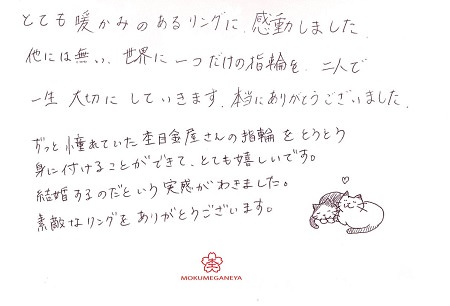 とても暖かみのあるリングに、感動しました。
他には無い、世界に一つだけの指輪を、二人で
一生大切にしていきます。本当にありがとうございました。
ずっと憧れていた杢目金屋さんの指輪をとうとう
身に付けることができて、とても嬉しいです。
結婚するのだという実感がわきました。
素敵なリングをありがとうございます。
MOKUMEGANEYA